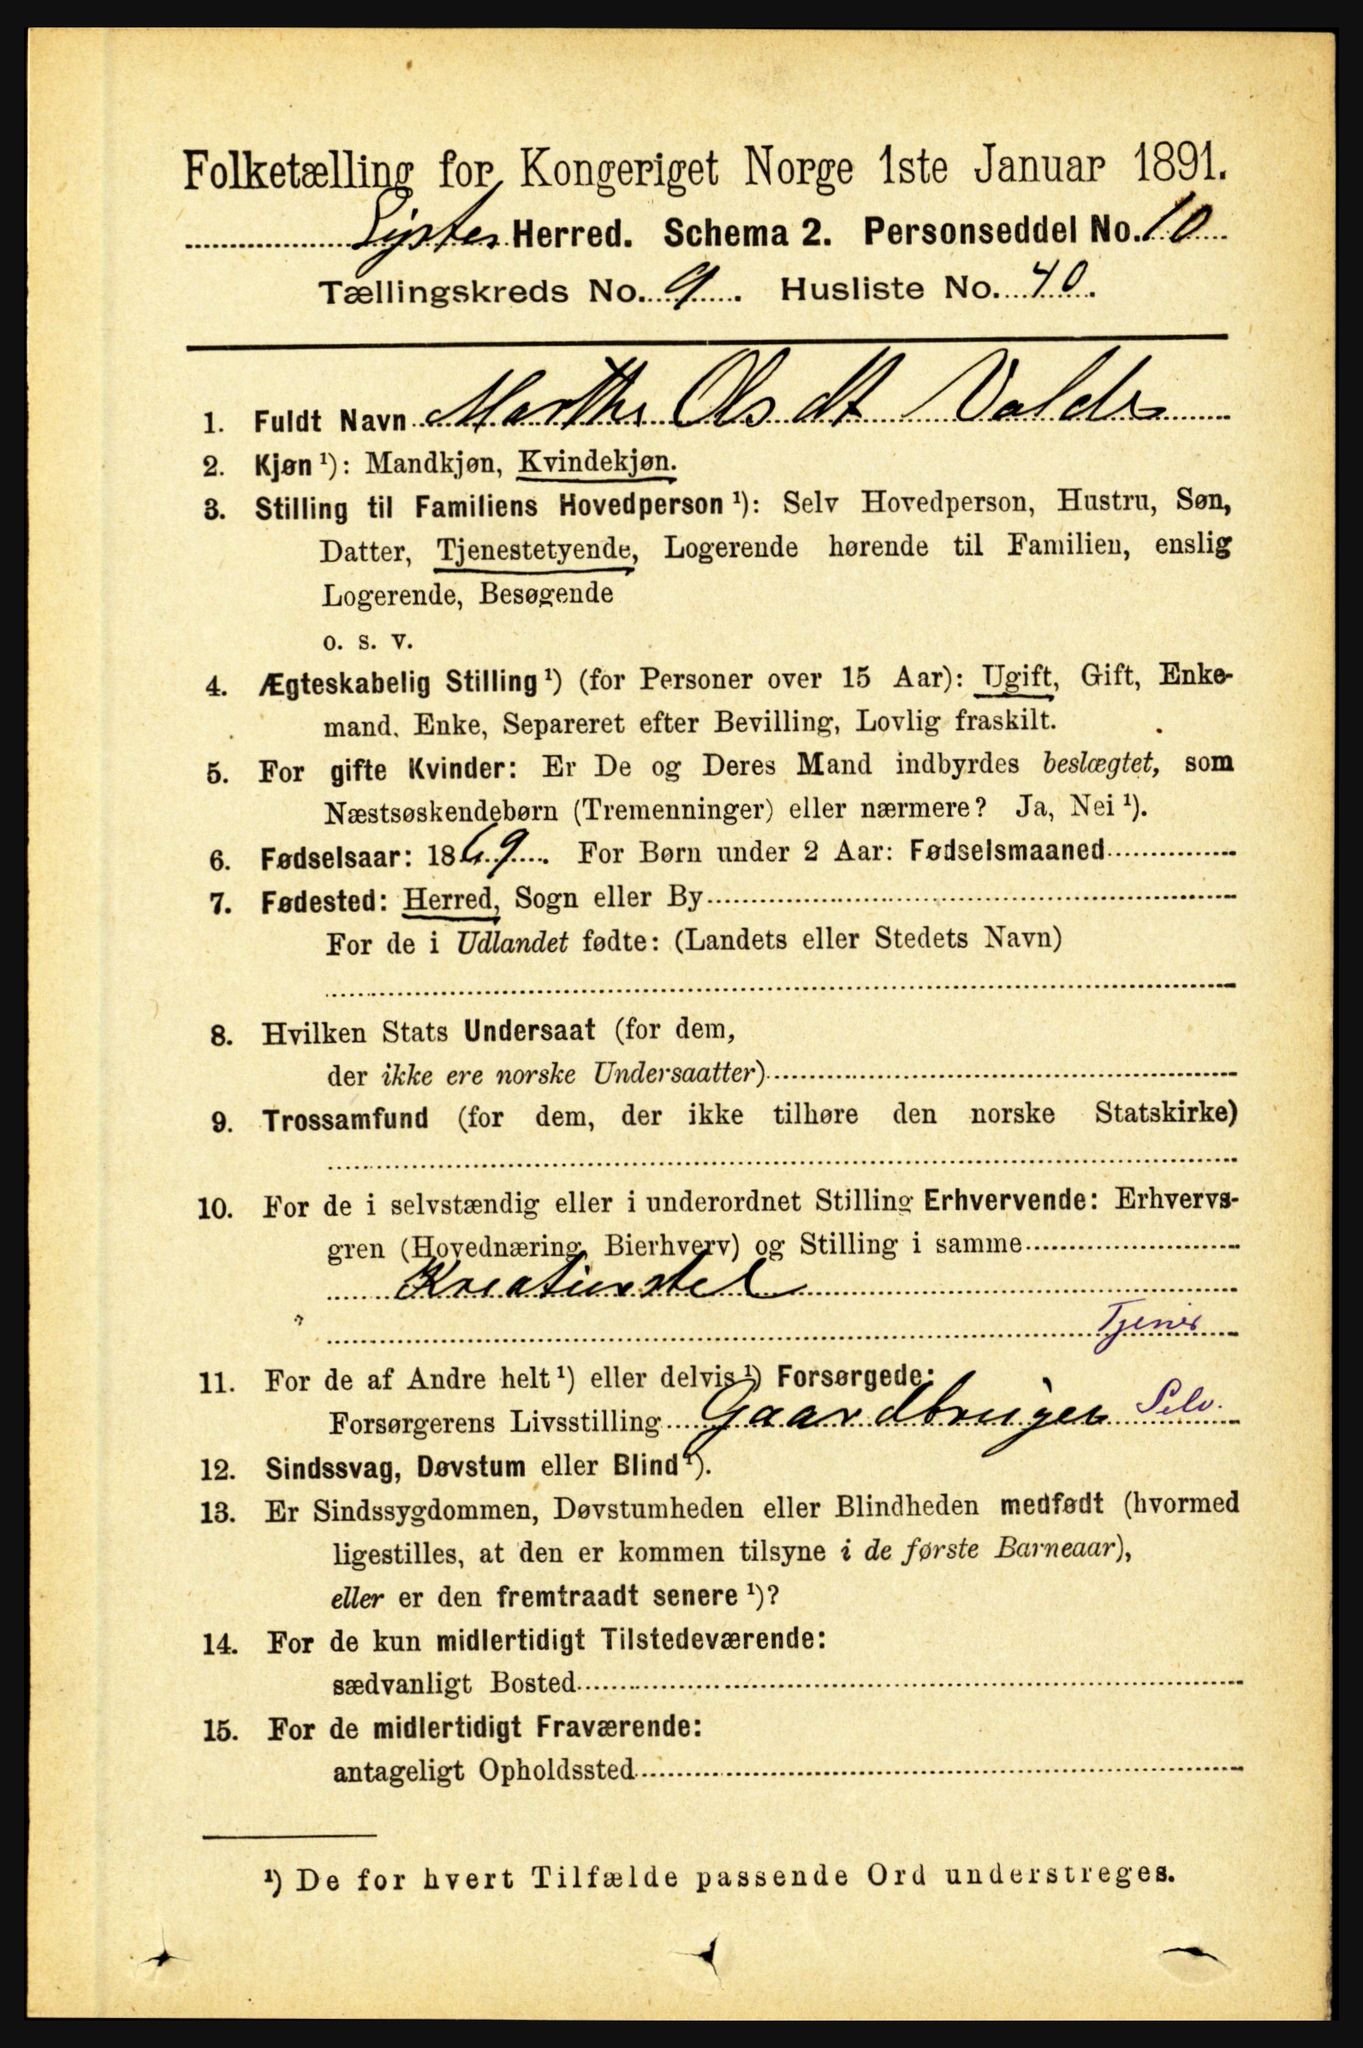 Folketælling for Kongeriget Norge 1ste Januar 1891.
Lyster Herred. Schema 2. Personseddel No. 10
Tællingskreds No. 9. Husliste No. 40.
1. Fuldt Navn Marthe Olsdt Valde
2. Kjøn ¹): Mandkjøn, Kvindekjøn.
3. Stilling til Familiens Hovedperson ¹): Selv Hovedperson, Hustru, Søn,
Datter, Tjenestetyende, Logerende hørende til Familien, enslig
Logerende, Besøgende
o. s. v.
4. Ægteskabelig Stilling ¹) (for Personer over 15 Aar): Ugift, Gift, Enke-
mand, Enke, Separeret efter Bevilling, Lovlig fraskilt.
5. For gifte Kvinder: Er De og Deres Mand indbyrdes beslægtet, som
Næstsøskendebørn (Tremenninger) eller nærmere? Ja, Nei ¹).
6. Fødselsaar: 1869. For Børn under 2 Aar: Fødselsmaaned
7. Fødested: Herred, Sogn eller By
For de i Udlandet fødte: (Landets eller Stedets Navn)
8. Hvilken Stats Undersaat (for dem,
der ikke ere norske Undersaatter)
9. Trossamfund (for dem, der ikke tilhøre den norske Statskirke)
10. For de i selvstændig eller i underordnet Stilling Erhvervende: Erhvervs-
gren (Hovednæring, Bierhverv) og Stilling i samme
Kreaturstel
Tjener
11. For de af Andre helt ¹) eller delvis ¹) Forsørgede:
Forsørgerens Livsstilling Gaardbruger Selv.
12. Sindssvag, Døvstum eller Blind ¹).
13. Er Sindssygdommen, Døvstumheden eller Blindheden medfødt (hvormed
ligestilles, at den er kommen tilsyne i de første Barneaar),
eller er den fremtraadt senere ¹)?
14. For de kun midlertidigt Tilstedeværende:
sædvanligt Bosted
15. For de midlertidigt Fraværende:
antageligt Opholdssted
¹) De for hvert Tilfælde passende Ord understreges.